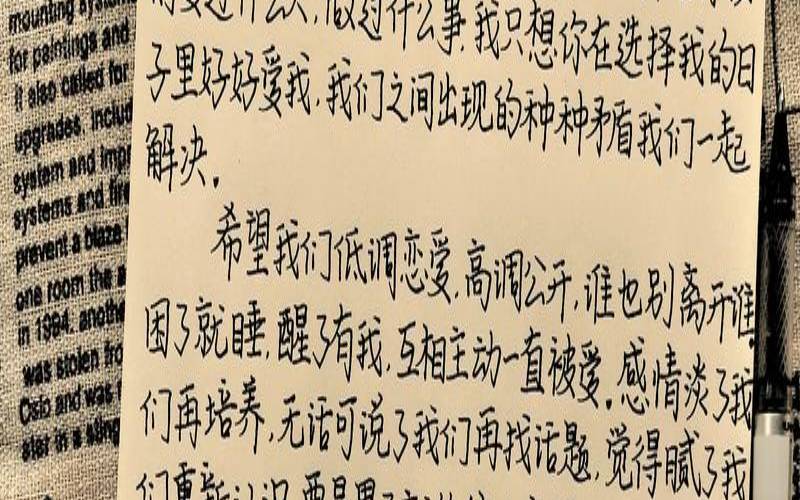 mounting syste
for paintings and
it also called for
upgrades, includ
system and imp
systems and fire
prevent a blaze
one room the a
in 1994, anothe
was stolen fro
Oslo and was
ster in a sting
过什么事,我只想你在选择我的日
子里好好爱我,我们之间出现的种种矛盾我们一起
解决。
希望我们低调恋爱,高调公开,谁也别离开谁,
困了就睡,醒了有我,互相主动一直被爱。感情淡了我
们再培养,无话可说了我们再找话题,觉得腻了我
们重新认识